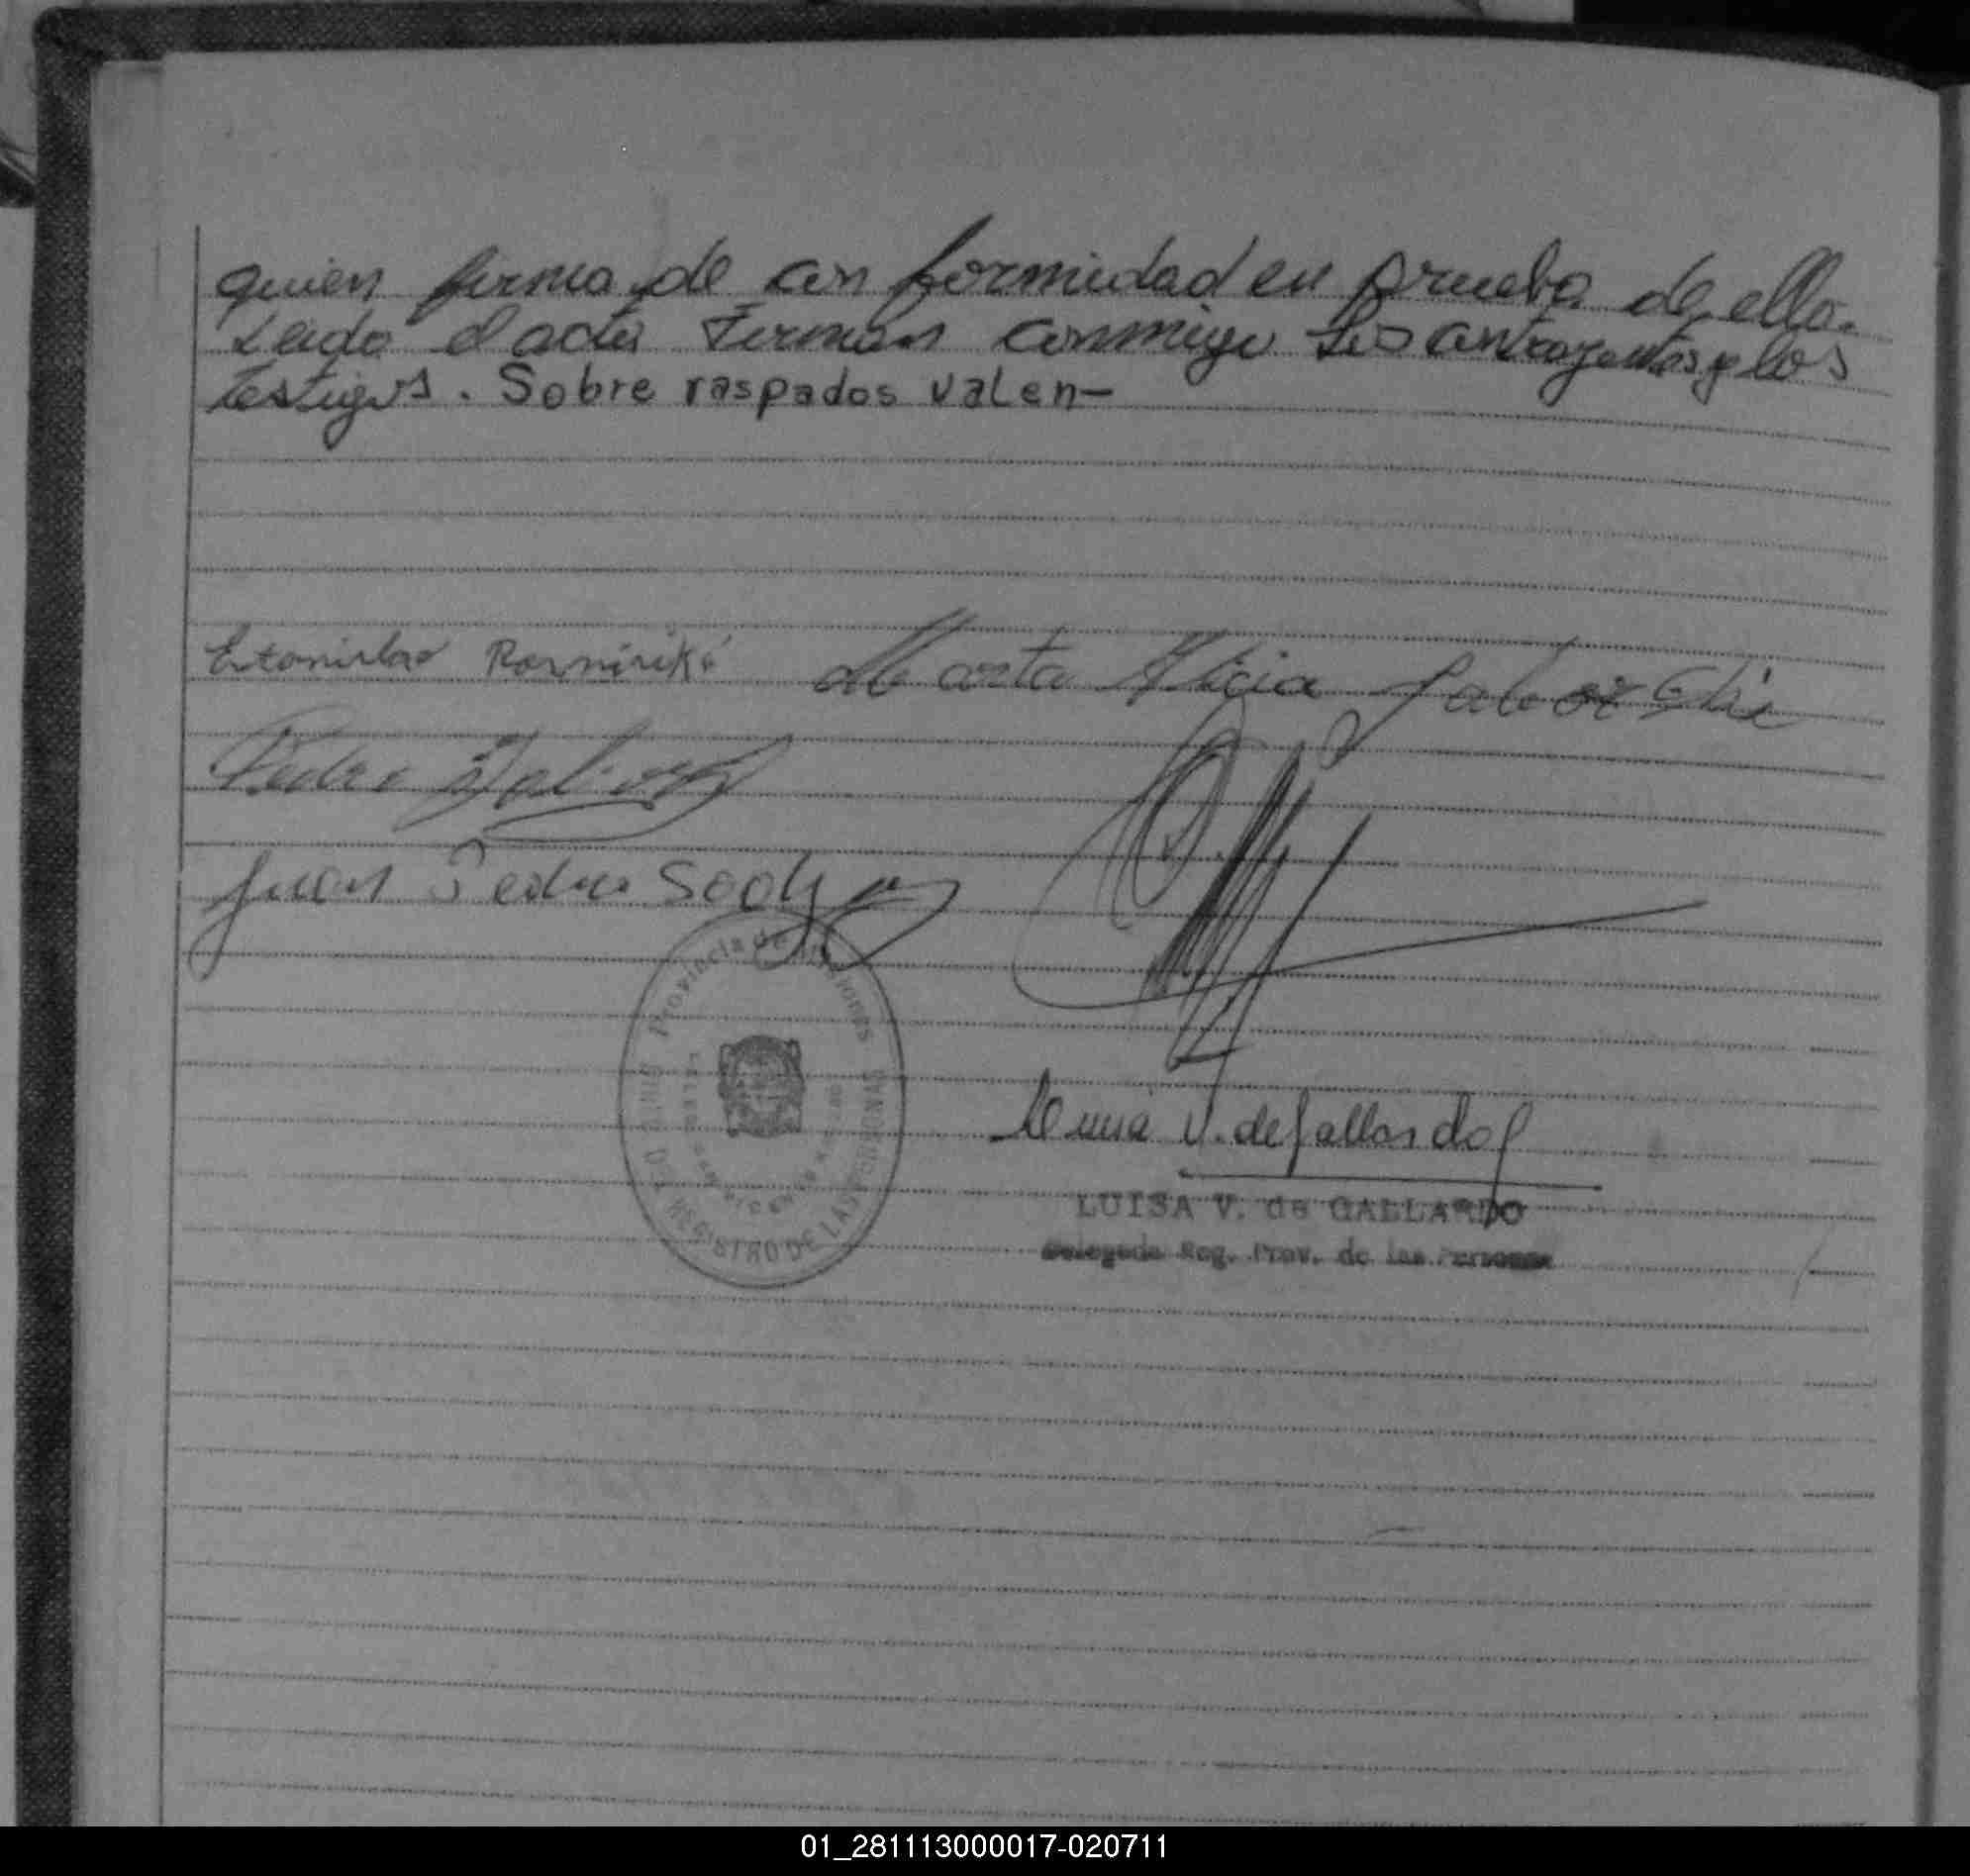 quien firma de conformidad en prueba de ello.
Leida el acta firman conmigo los contrayentes y los
testigos. Sobre raspados valen—
Marta Alicia
Pedro
Juan Pedro
Provincia de Misiones
REGISTRO DE LAS PERSONAS
Luisa V. de Gallardo
LUISA V. de GALLARDO
Delegada Reg. Prov. de las Personas
01_281113000017-020711